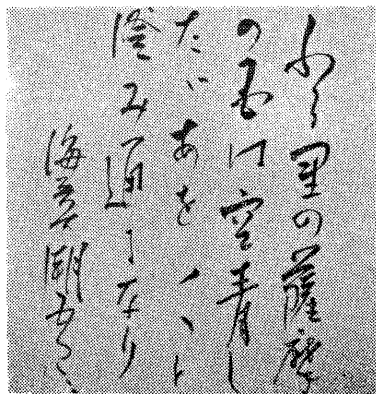 ふる里の薩摩
の国は空青し
たゞあを〱と
澄み通るなり
海音寺潮五郎